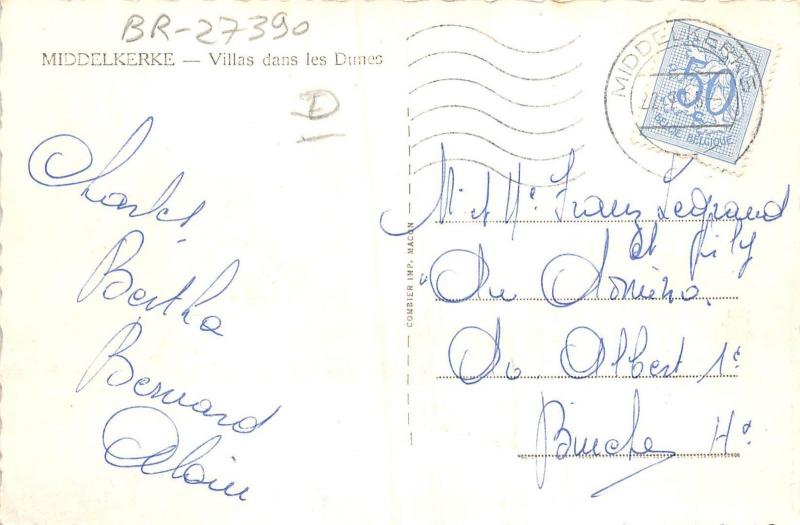 BR-27390
MIDDELKERKE — Villas dans les Dunes
D
MIDDELKERKE
50
BELGIE-BELGIQUE
Charles
Bertha
Bernard
Alain
COMBIER IMP. MACON
M. et Me Franz Legrand
et fily
"Au Domino"
Av. Albert 1e
Binche Ht